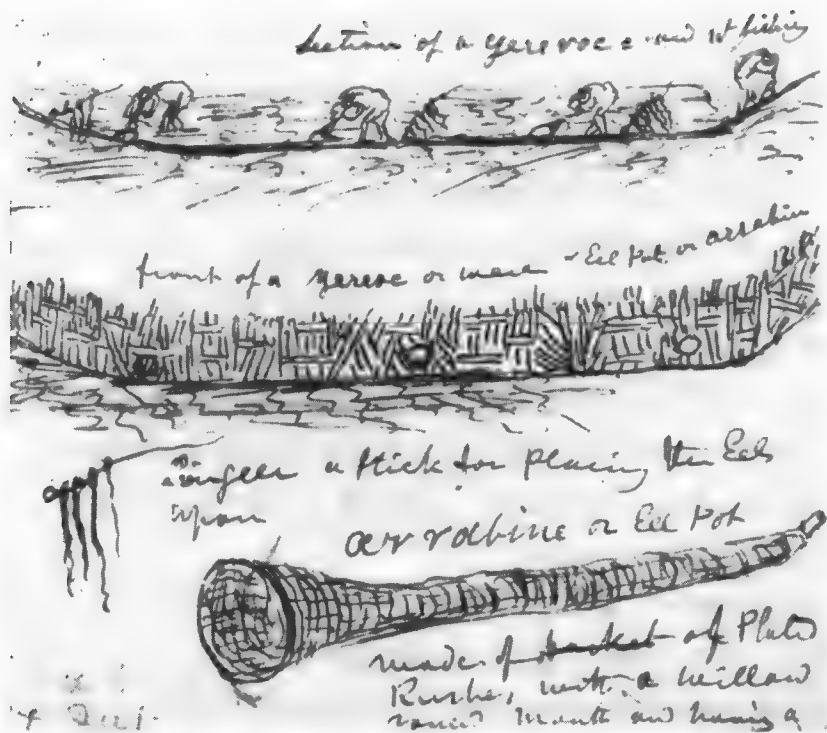 Section of a yereroc - and it fishing
front of a yereroc or weir - Eel Pot or arrabine
Lingeer a Stick for Placing the Eels
upon
arrabine or Eel Pot
made of basket of Plated
Rushes, with a willow
round Mouth and having a